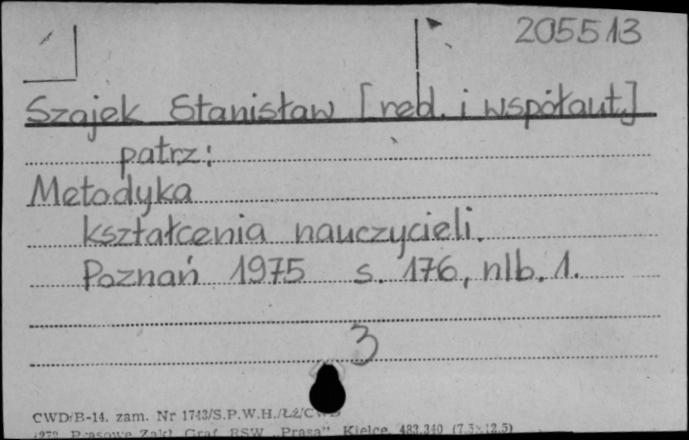 205513
Szajek Stanisław [red. i współaut.]
patrz:
Metodyka
kształcenia nauczycieli.
Poznań 1975 s. 176, nlb. 1.
3
CWD/B-14. zam. Nr 1743/S.P.W.H./Łź/CWD
Prasowe Zakł. Graf. RSW „Prasa" Kielce. 483.340 (7.5×12.5)